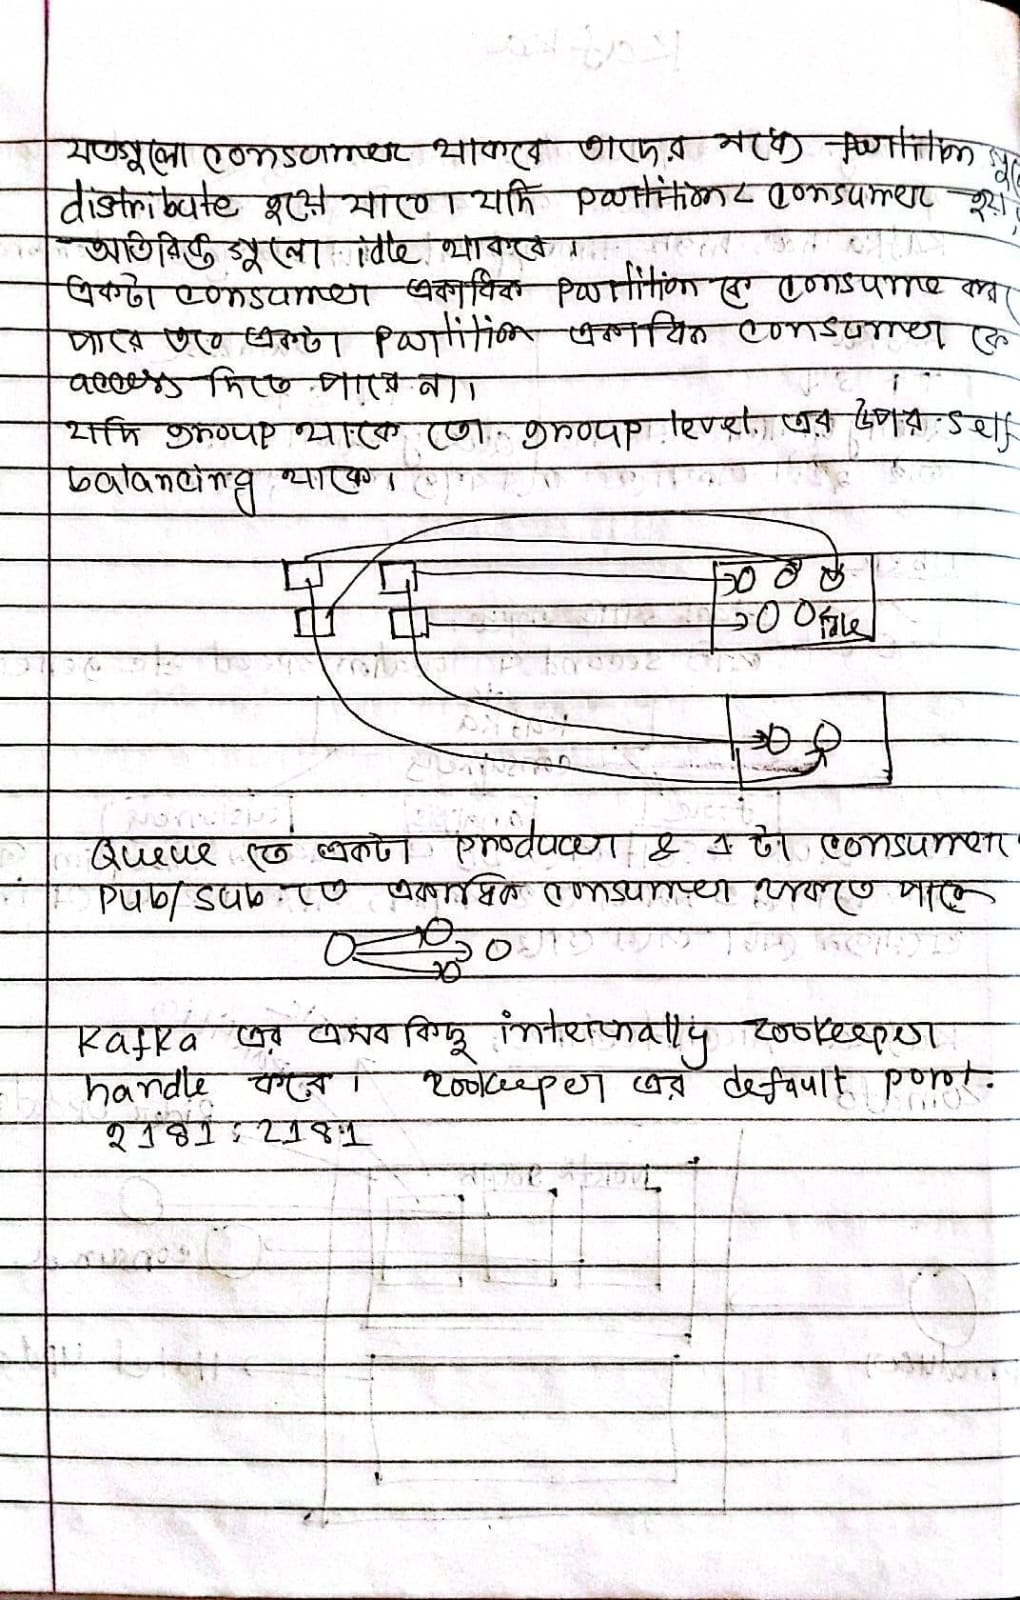 যতগুলো consumer থাকবে তাদের মধ্যে partition গুলো
distribute হয়ে যাবে। যদি partition < consumer হয়,
অতিরিক্ত গুলো idle থাকবে।
একটা consumer একাধিক partition কে consume করতে
পারে তবে একটা partition একাধিক consumer কে
access দিতে পারে না।
যদি group থাকে তো group level এর উপর self
balancing থাকে।
idle
Queue তে একটা producer & ১ টা consumer
pub/sub তে একাধিক consumer থাকতে পারে
Kafka এর এসব কিছু internally zookeeper
handle করে। zookeeper এর default port.
2181:2181